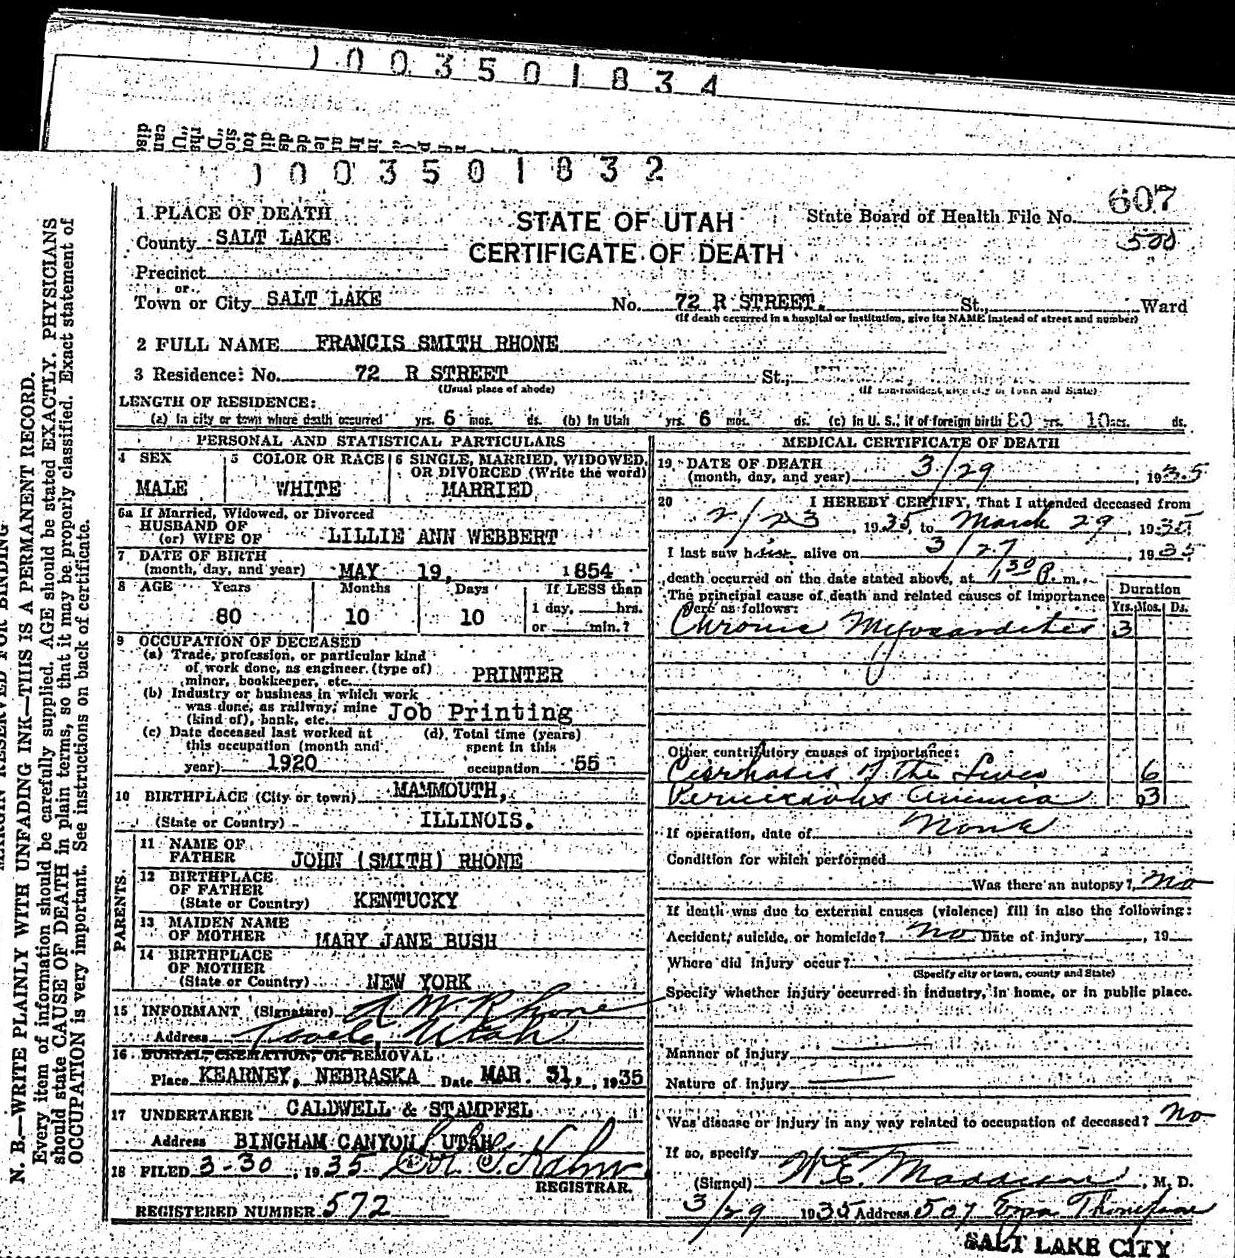 1003501834
1003501832
607
500
STATE OF UTAH
CERTIFICATE OF DEATH
State Board of Health File No.
1 PLACE OF DEATH
County SALT LAKE
Precinct
or
Town or City SALT LAKE No. 72 R STREET. St., Ward
(If death occurred in a hospital or institution, give its NAME instead of street and number)
2 FULL NAME FRANCIS SMITH RHONE
3 Residence: No. 72 R STREET St.,
(Usual place of abode) (If non-resident give city or town and State)
LENGTH OF RESIDENCE:
(a) In city or town where death occurred yrs. 6 mos. ds. (b) In Utah yrs. 6 mos. ds. (c) In U. S., if of foreign birth 80 yrs. 10 mos. ds.
PERSONAL AND STATISTICAL PARTICULARS
4 SEX
MALE
5 COLOR OR RACE
WHITE
6 SINGLE, MARRIED, WIDOWED, OR DIVORCED (Write the word)
MARRIED
6a If Married, Widowed, or Divorced
HUSBAND OF
(or) WIFE OF LILLIE ANN WEBBERT
7 DATE OF BIRTH
(month, day, and year) MAY 19, 1854
8 AGE Years Months Days If LESS than
80 10 10 1 day, hrs.
or min.?
9 OCCUPATION OF DECEASED
(a) Trade, profession, or particular kind
of work done, as engineer (type of)
miner, bookkeeper, etc. PRINTER
(b) Industry or business in which work
was done, as railway, mine
(kind of), bank, etc. Job Printing
(c) Date deceased last worked at
this occupation (month and
year) 1920
(d) Total time (years)
spent in this
occupation 55
10 BIRTHPLACE (City or town) MAMMOUTH,
(State or Country) ILLINOIS.
PARENTS.
11 NAME OF
FATHER JOHN (SMITH) RHONE
12 BIRTHPLACE
OF FATHER
(State or Country) KENTUCKY
13 MAIDEN NAME
OF MOTHER MARY JANE BUSH
14 BIRTHPLACE
OF MOTHER
(State or Country) NEW YORK
15 INFORMANT (Signature) Rhone
Address Tooele, Utah
16 BURIAL, CREMATION, OR REMOVAL
Place KEARNEY, NEBRASKA Date MAR. 31, 1935
17 UNDERTAKER CALDWELL & STAMPFEL
Address BINGHAM CANYON, UTAH
18 FILED 3-30, 1935
REGISTRAR.
REGISTERED NUMBER 572
MEDICAL CERTIFICATE OF DEATH
19 DATE OF DEATH
(month, day, and year) 3/29, 1935
20 I HEREBY CERTIFY, That I attended deceased from
2/23, 1935, to March 29, 1935
I last saw him alive on 3/27, 1935
death occurred on the date stated above, at 1:30 P. m.
The principal cause of death and related causes of importance
were as follows:
Duration
Yrs. Mos. Ds.
Chronic Myocarditis 3
Other contributory causes of importance:
Cirrhosis of the Liver 6
Pernicious Anemia 3
If operation, date of None
Condition for which performed
Was there an autopsy? No
If death was due to external causes (violence) fill in also the following:
Accident, suicide, or homicide? No Date of injury , 19
Where did injury occur?
(Specify city or town, county and State)
Specify whether injury occurred in industry, in home, or in public place.
Manner of Injury
Nature of Injury
Was disease or injury in any way related to occupation of deceased? No
If so, specify
(Signed) W.E. , M. D.
3/29 1935 Address 507 Ezra Thompson
SALT LAKE CITY
N. B.—WRITE PLAINLY WITH UNFADING INK—THIS IS A PERMANENT RECORD.
Every item of information should be carefully supplied. AGE should be stated EXACTLY. PHYSICIANS
should state CAUSE OF DEATH in plain terms, so that it may be properly classified. Exact statement of
OCCUPATION is very important. See instructions on back of certificate.